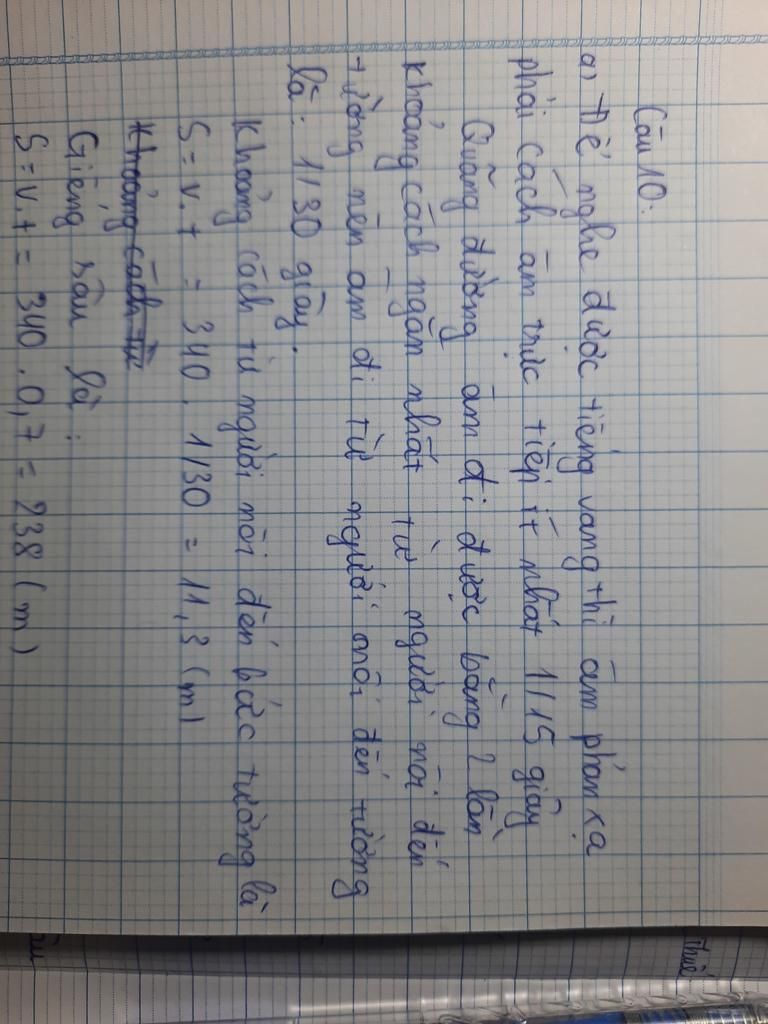 Câu 10:
a) Để nghe được tiếng vang thì âm phản xạ
phải cách âm trực tiếp ít nhất 1/15 giây
Quãng đường âm đi được bằng 2 lần
khoảng cách ngắn nhất từ người nói đến
tường nên âm đi từ người nói đến tường
là: 1/30 giây.
Khoảng cách từ người nói đến bức tường là
S = v.t = 340 . 1/30 = 11,3 (m)
Khoảng cách từ
Giếng sâu là:
S = v.t = 340 . 0,7 = 238 (m)